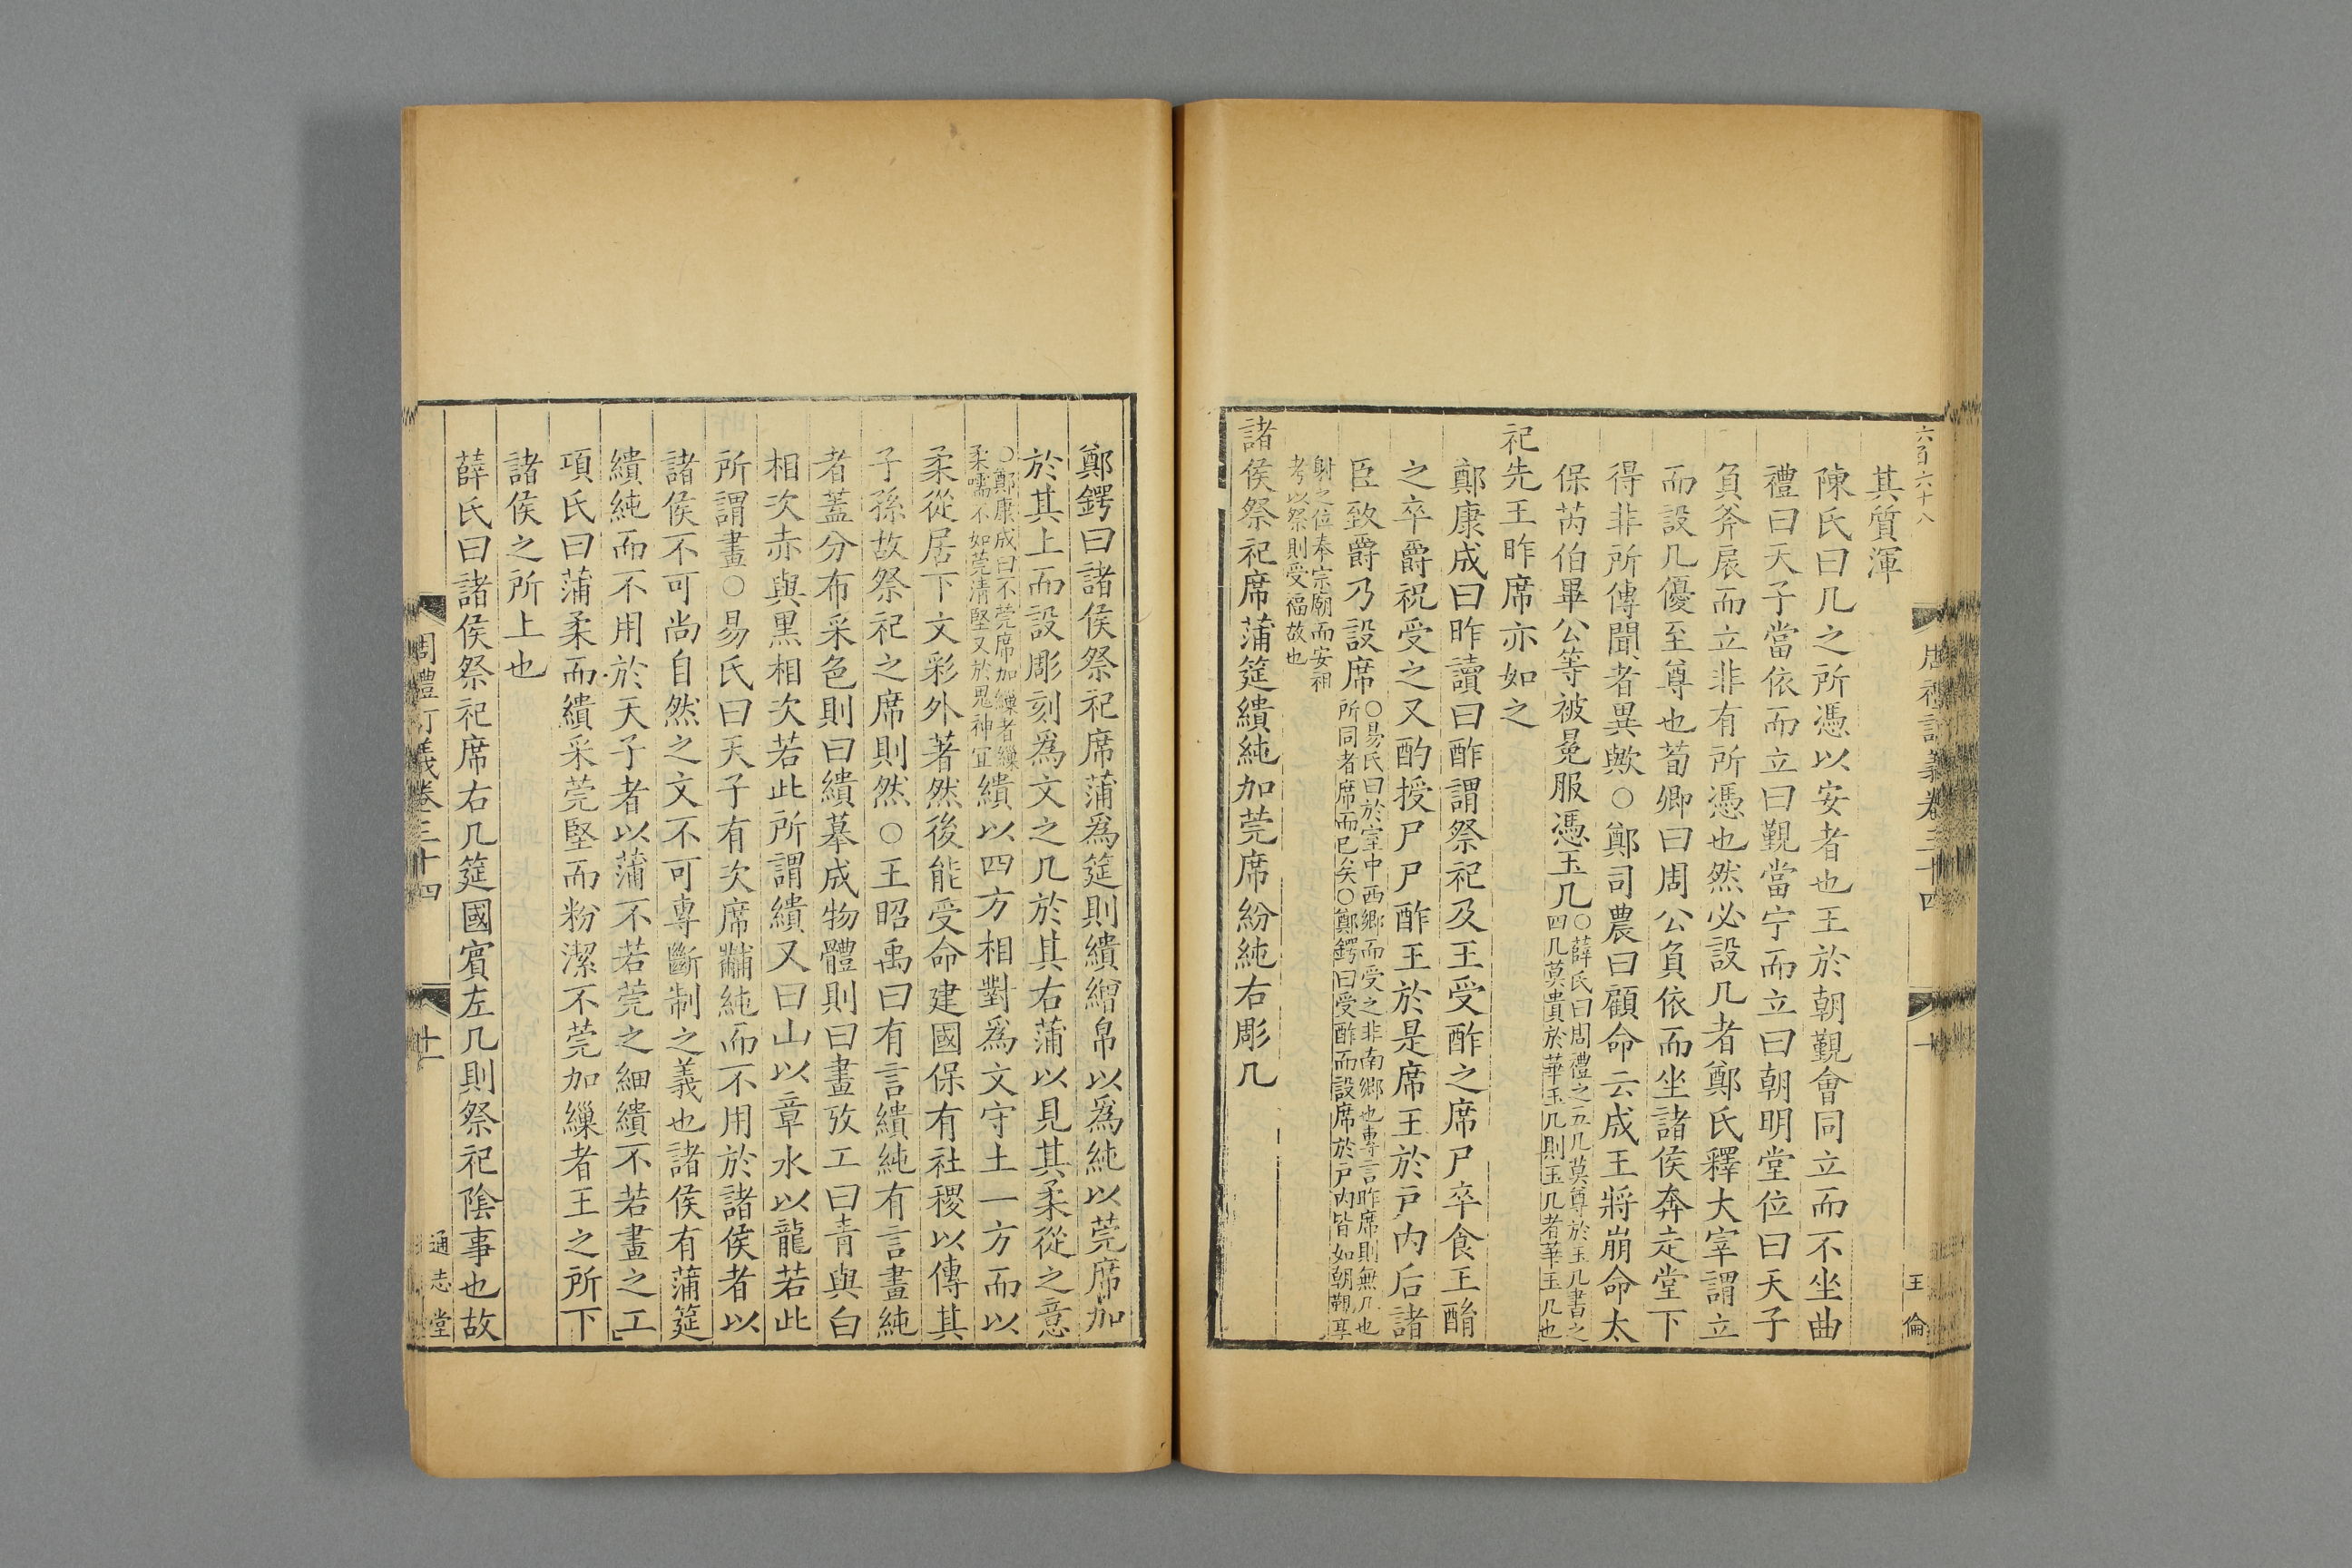 六百六十八
周禮訂義卷三十四
十一
王倫
其質渾
陳氏曰几之所憑以安者也王於朝覲會同立而不坐曲
禮曰天子當依而立曰覲當宁而立曰朝明堂位曰天子
負斧扆而立非有所憑也然必設几者鄭氏釋大宰謂立
而設几優至尊也荀卿曰周公負依而坐諸侯奔走堂下
得非所傳聞者異歟○鄭司農曰顧命云成王將崩命太
保芮伯畢公等被冕服憑玉几○薛氏曰周禮之五几莫尊於玉几書之
四几莫貴於華玉几則玉几者華玉几也
祀先王昨席亦如之
鄭康成曰昨讀曰酢謂祭祀及王受酢之席尸卒食王酳
之卒爵祝受之又酌授尸尸酢王於是席王於戶內后諸
臣致爵乃設席○易氏曰於室中西鄉而受之非南鄉也專言昨席則無几也
所同者席而已矣○鄭鍔曰受酢而設席於戶內皆如朝覲享
射之位奉宗廟而安祖
考以祭則受福故也
諸侯祭祀席蒲筵繢純加莞席紛純右彫几
鄭鍔曰諸侯祭祀席蒲為筵則繢繒帛以為純以莞席加
於其上而設彫刻為文之几於其右蒲以見其柔從之意
○鄭康成曰不莞席加繅者繅
柔嚅不如莞清堅又於鬼神宜繢以四方相對為文守土一方而以
柔從居下文彩外著然後能受命建國保有社稷以傳其
子孫故祭祀之席則然○王昭禹曰有言繢純有言畫純
者蓋分布采色則曰繢摹成物體則曰畫攷工曰青與白
相次赤與黑相次若此所謂繢又曰山以章水以龍若此
所謂畫○易氏曰天子有次席黼純而不用於諸侯者以
諸侯不可尚自然之文不可專斷制之義也諸侯有蒲筵
繢純而不用於天子者以蒲不若莞之細繢不若畫之工
項氏曰蒲柔而繢采莞堅而粉潔不莞加繅者王之所下
諸侯之所上也
薛氏曰諸侯祭祀席右几筵國賓左几則祭祀陰事也故
周禮訂義卷三十四
十一
通志堂